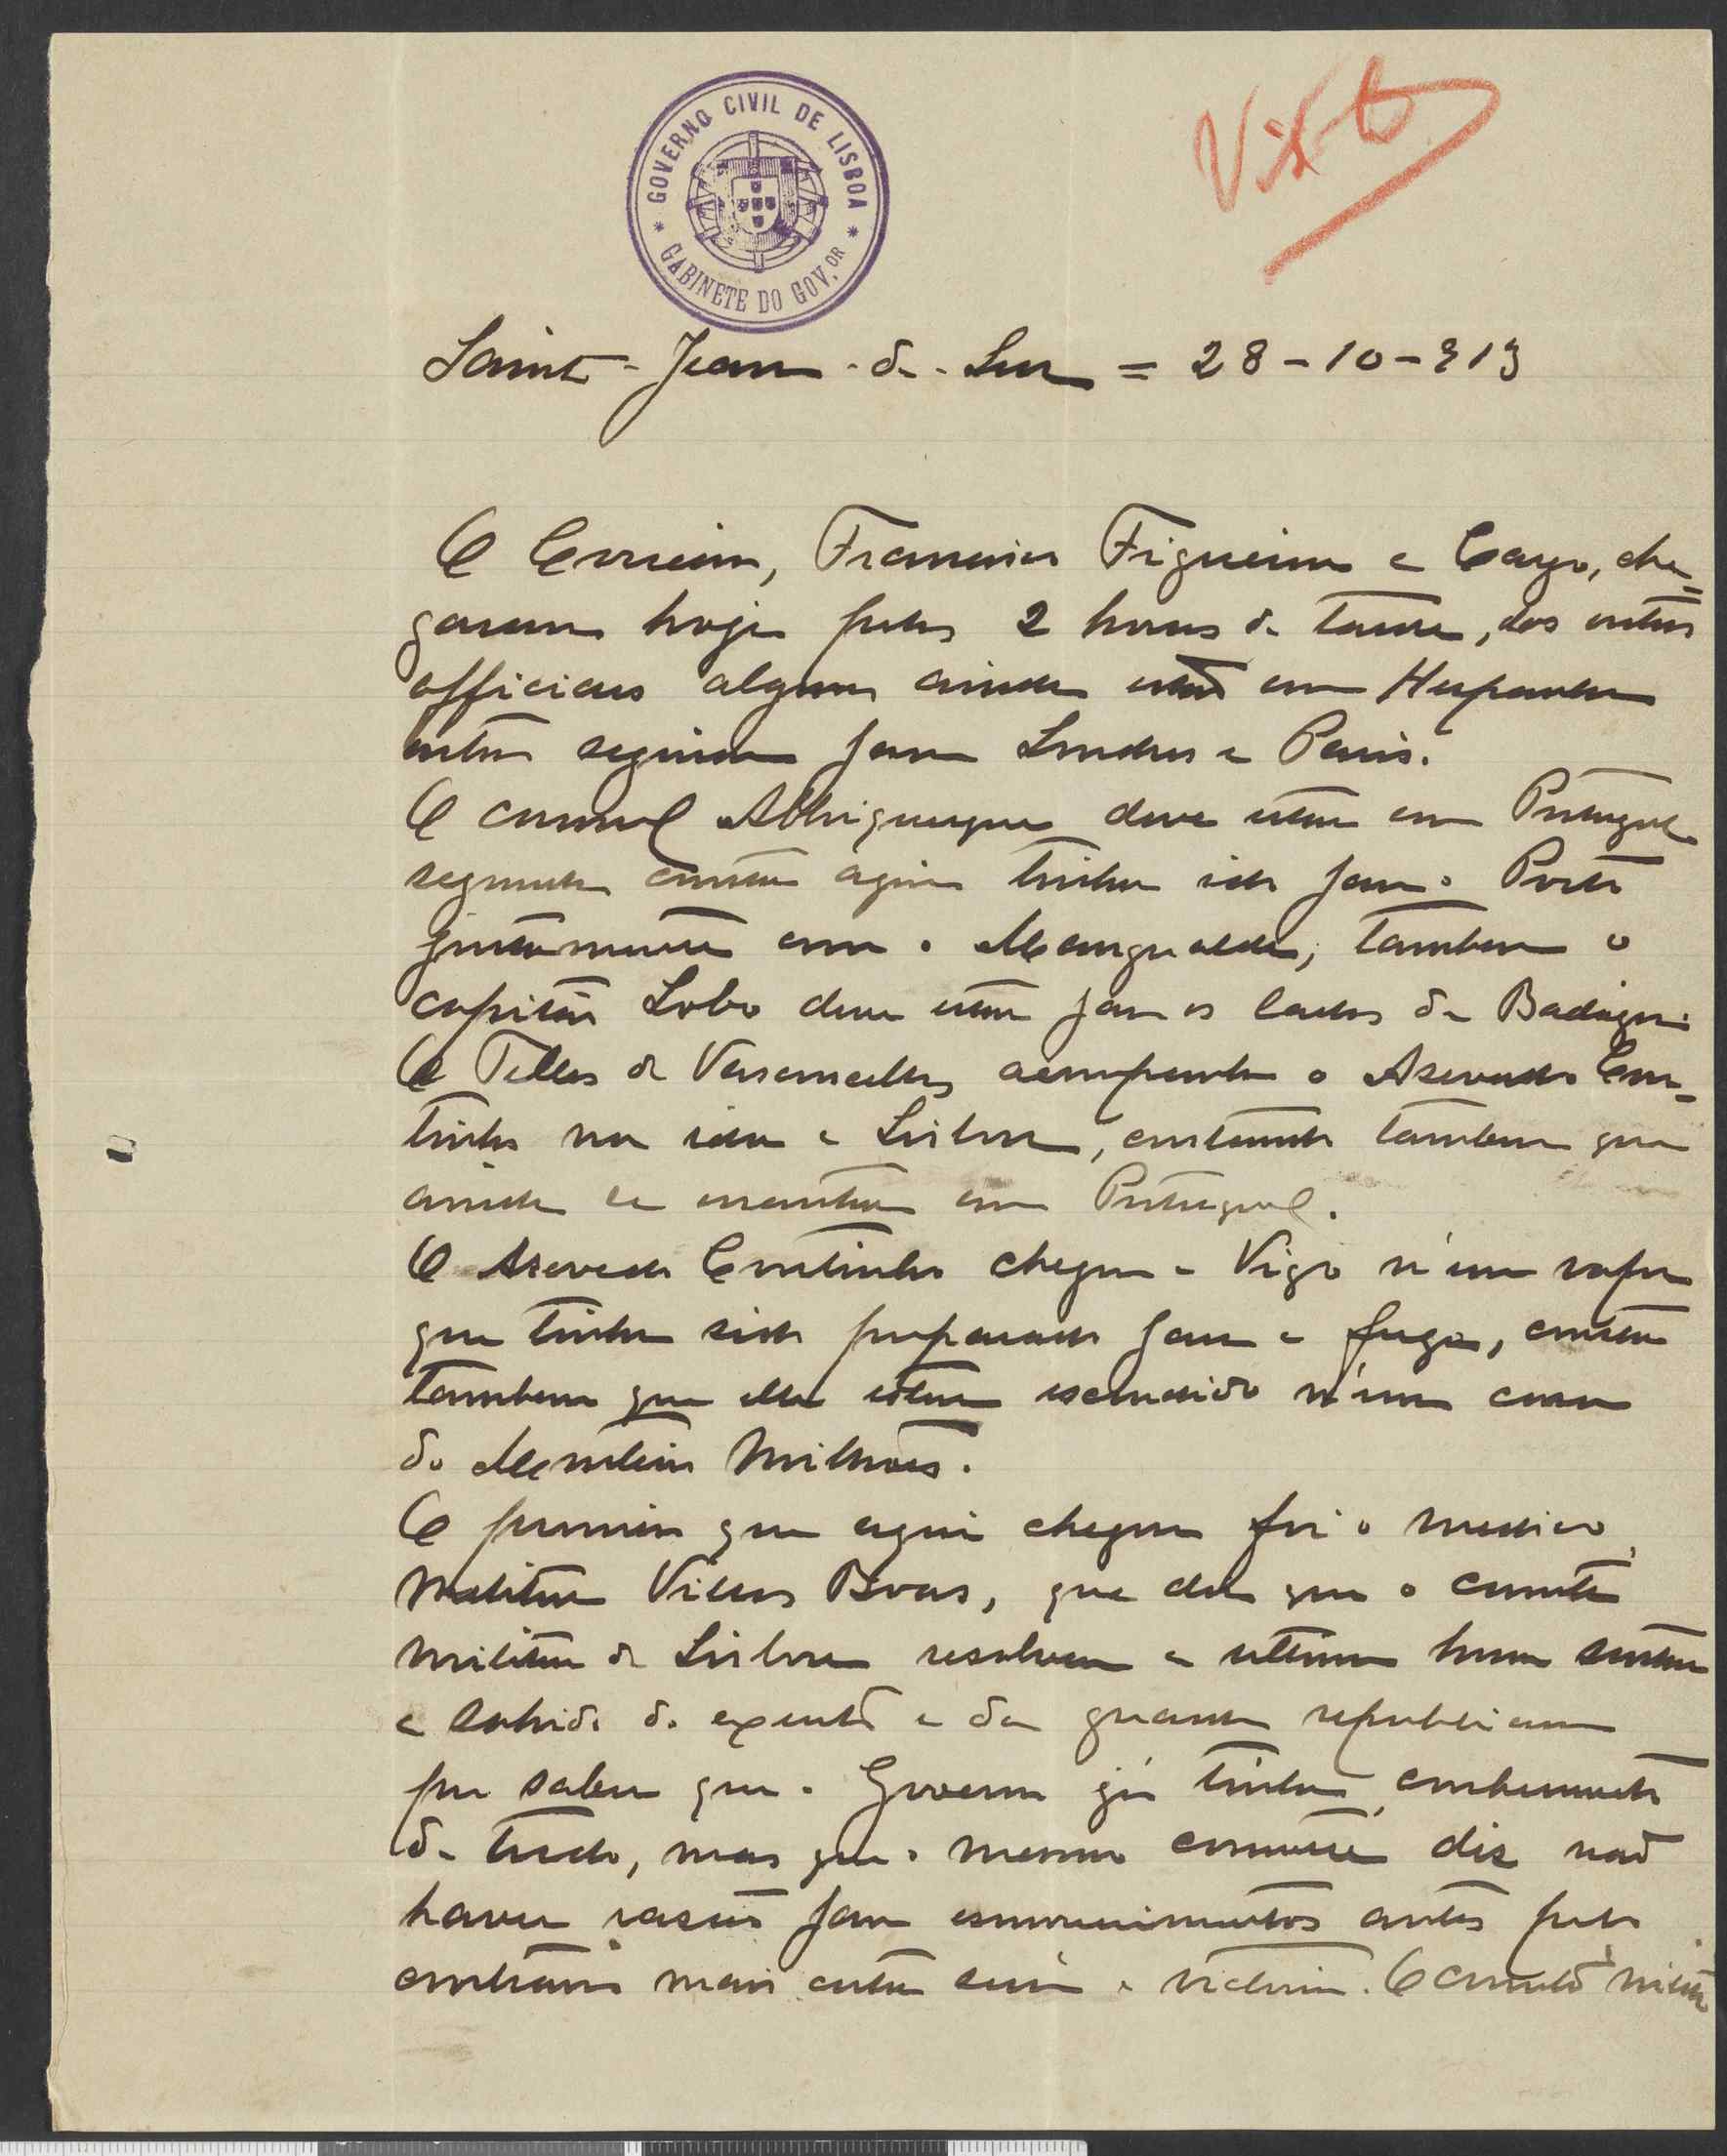 GOVERNO CIVIL DE LISBOA
GABINETE DO GOV.OR
Visto
Saint-Jean-de-Luz = 28-10-913
O Correia, Francisco Figueira e Cayo, che=
garam hoje pelas 2 horas da tarde, dos outros
officiaes alguns ainda estão em Hespanha
outros seguiram para Londres e Paris.
O coronel Albuquerque deve estar em Portugal
segundo consta agora tinha ido para o Porto
juntamente com o Mangualde, tambem o
capitão Lobo deve estar para os lados de Badajoz.
O Telles de Vasconcellos acompanhou o Azevedo Cou-
tinho na ida a Lisboa, constando tambem que
ainda se encontra em Portugal.
O Azevedo Coutinho chegou a Vigo n'um vapor
que tinha sido preparado para a fuga, consta
tambem que elle esteve escondido n'uma casa
do Monteiro Milhões.
O primeiro que aqui chegou foi o medico
militar Villas Boas, que diz que o comité
militar de Lisboa resolveu a ultima hora sustar
a sahida do exercito e da guarda republicana
por saber que o Governo já tinha conhecimento
de tudo, mas que o mesmo comité diz não
haver rasão para esmorecimentos antes pelo
contrario mais certa será a victoria. O comité militar